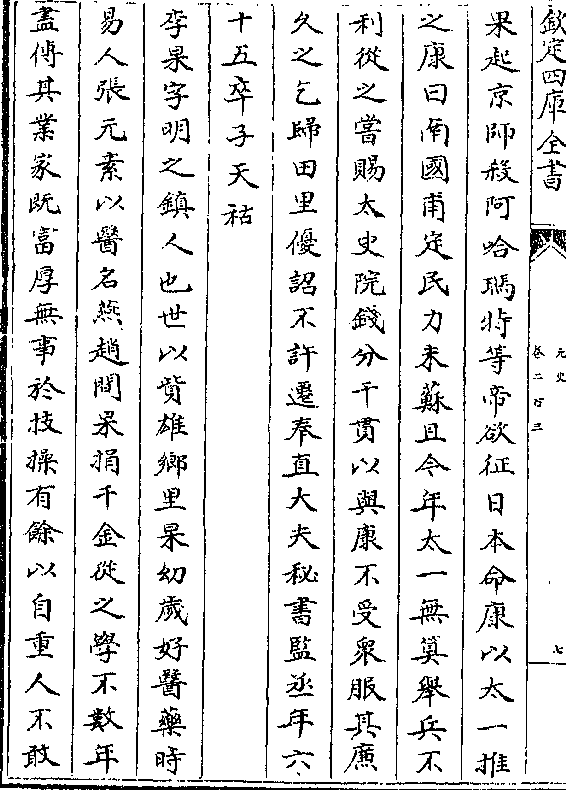 欽定四庫全書
元史
卷二百三
七
果起京師殺阿哈瑪特等帝欲征日本命康以太一推
之康曰南國甫定民力未蘇且今年太一無算舉兵不
利從之嘗賜太史院錢分千貫以與康不受衆服其㢘
久之乞歸田里優詔不許遷奉直大夫秘書監丞年六
十五卒子天祐
李杲字明之鎮人也世以貲雄鄉里杲幼歲好醫藥時
易人張元素以醫名燕趙間杲捐千金從之學不數年
盡傳其業家既富厚無事於技操有餘以自重人不敢